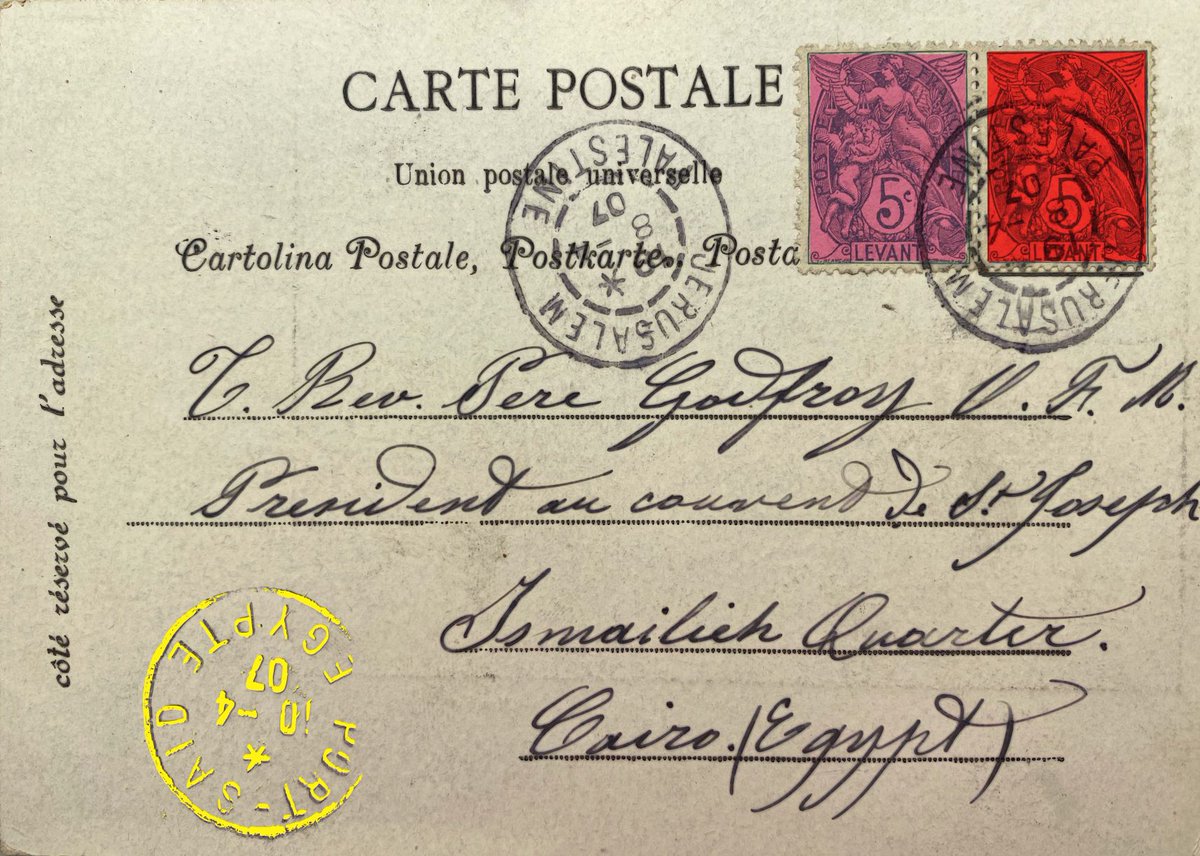 CARTE POSTALE
Union postale universelle
Cartolina Postale, Postkarte, Posta
côté réservé pour l'adresse
5c
LEVANT
5c
LEVANT
JERUSALEM
PALESTINE
07
JERUSALEM
PALESTINE
07
T. Rev. Pere Godfroy O. F. M.
President au couvent de St Joseph
Ismailieh Quarter.
Cairo. (Egypt)
PORT-SAID
EGYPTE
10-4
07